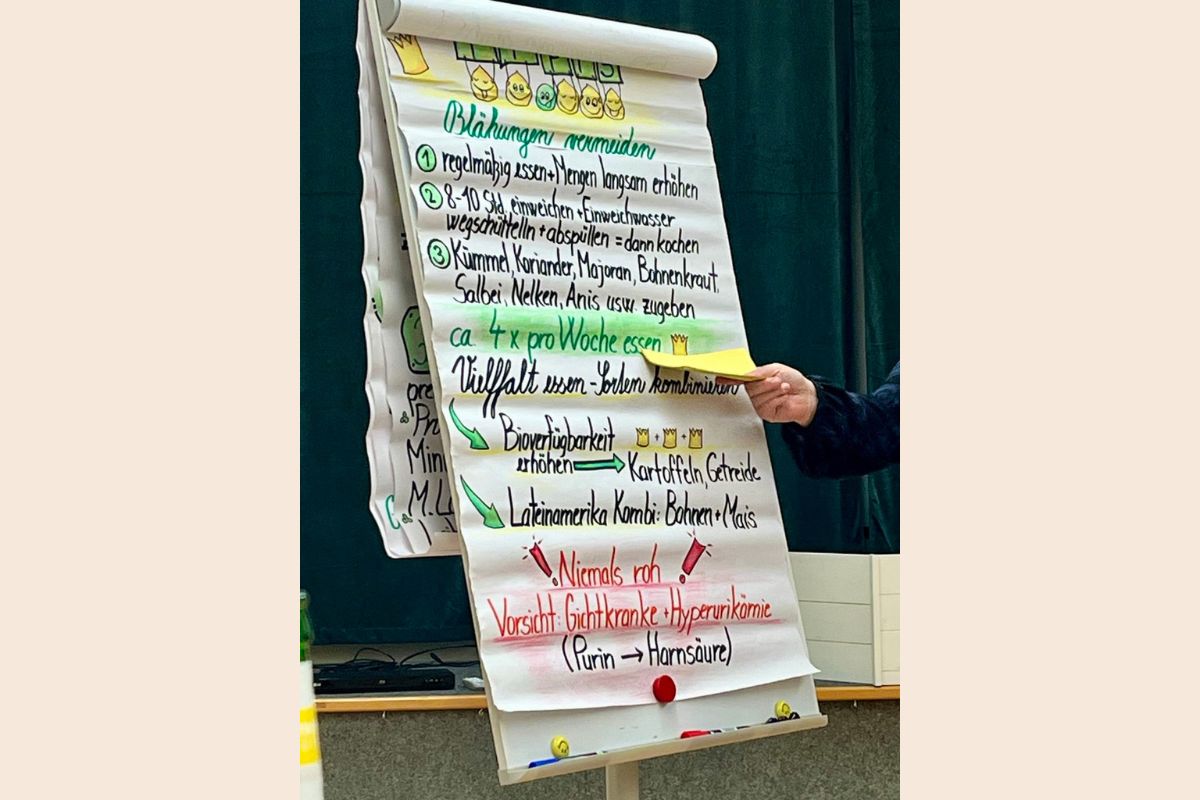 Blähungen vermeiden
1 regelmäßig essen + Mengen langsam erhöhen
2 8-10 Std. einweichen + Einweichwasser
wegschütteln + abspüllen = dann kochen
3 Kümmel, Koriander, Majoran, Bohnenkraut,
Salbei, Nelken, Anis usw. zugeben
ca. 4 x pro Woche essen
Vielffalt essen - Sorten kombinieren
Bioverfügbarkeit + +
erhöhen → Kartoffeln, Getreide
Lateinamerika Kombi: Bohnen + Mais
! Niemals roh !
Vorsicht: Gichtkranke + Hyperurikämie
(Purin → Harnsäure)
Min